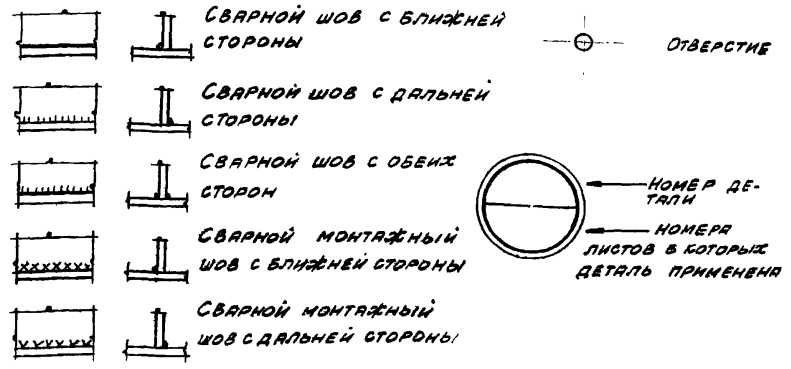 Сварной шов с ближней
стороны
Сварной шов с дальней
стороны
Сварной шов с обеих
сторон
Сварной монтажный
шов с ближней стороны
Сварной монтажный
шов с дальней стороны
Отверстие
Номер де-
тали
Номера
листов в которых
деталь применена